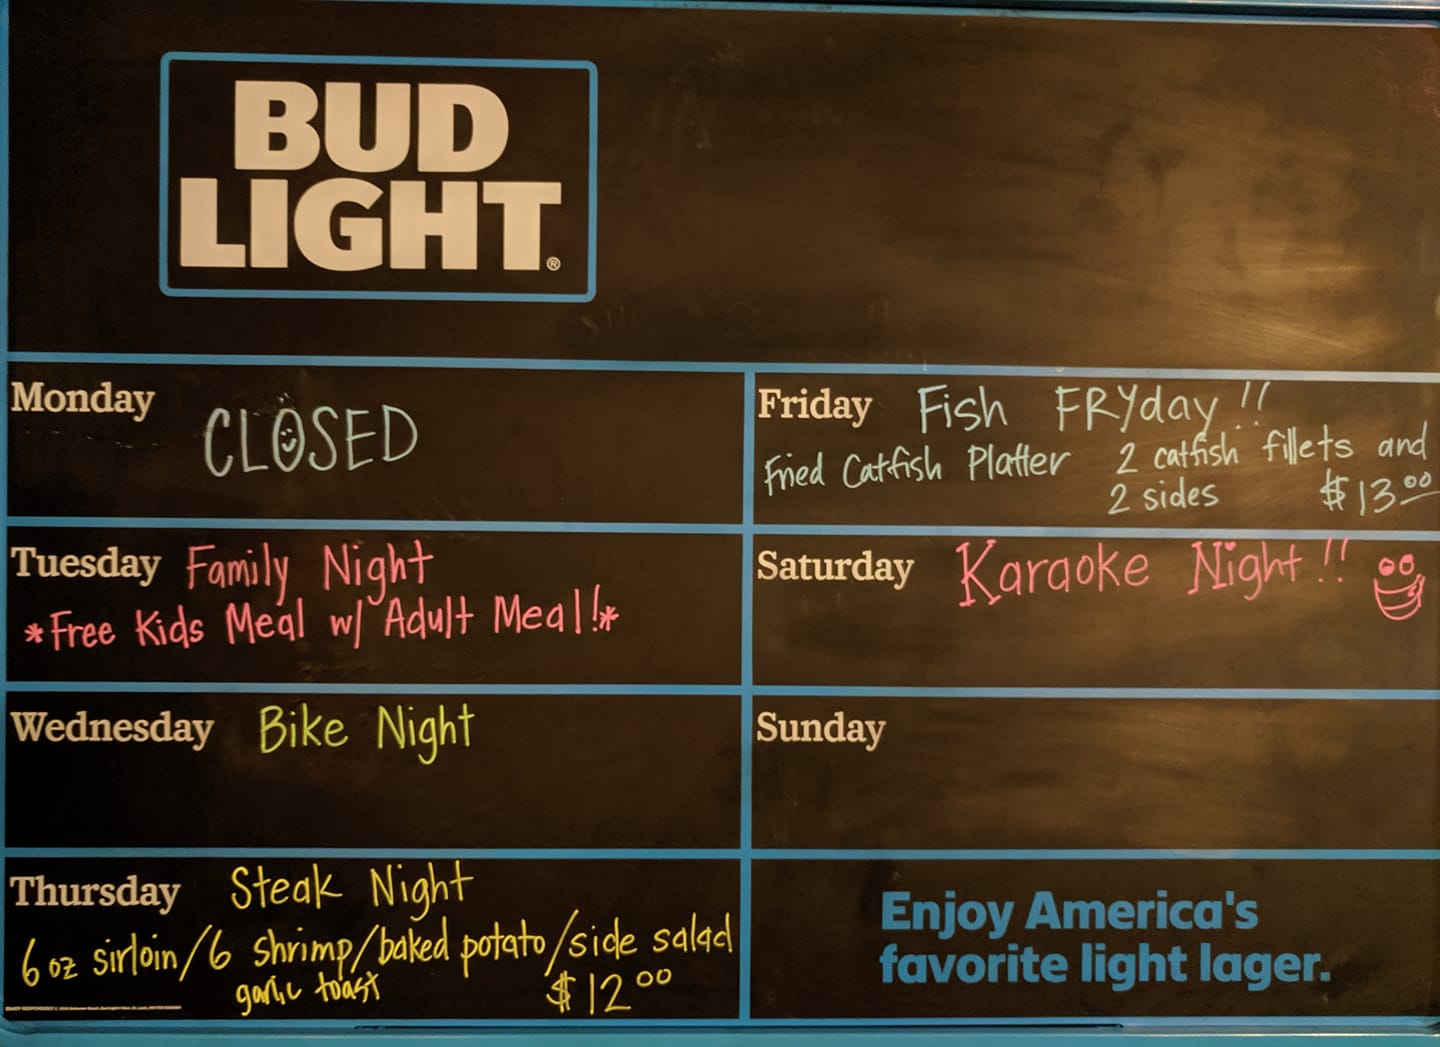 BUD
LIGHT®
Monday
CLOSED
Tuesday Family Night
*Free Kids Meal w/ Adult Meal!*
Wednesday Bike Night
Thursday Steak Night
6 oz sirloin/6 shrimp/baked potato/side salad
garlic toast $12.00
Friday Fish FRYday!!
Fried Catfish Platter 2 catfish fillets and
2 sides $13.00
Saturday Karaoke Night!!
Sunday
Enjoy America's
favorite light lager.